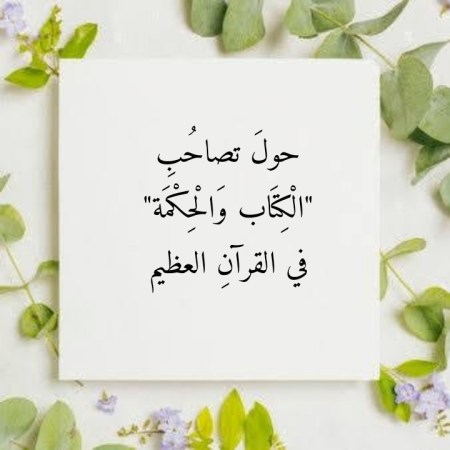 حولَ تصاحُبِ
"الْكِتَاب وَالْحِكْمَة"
في القرآنِ العظيم